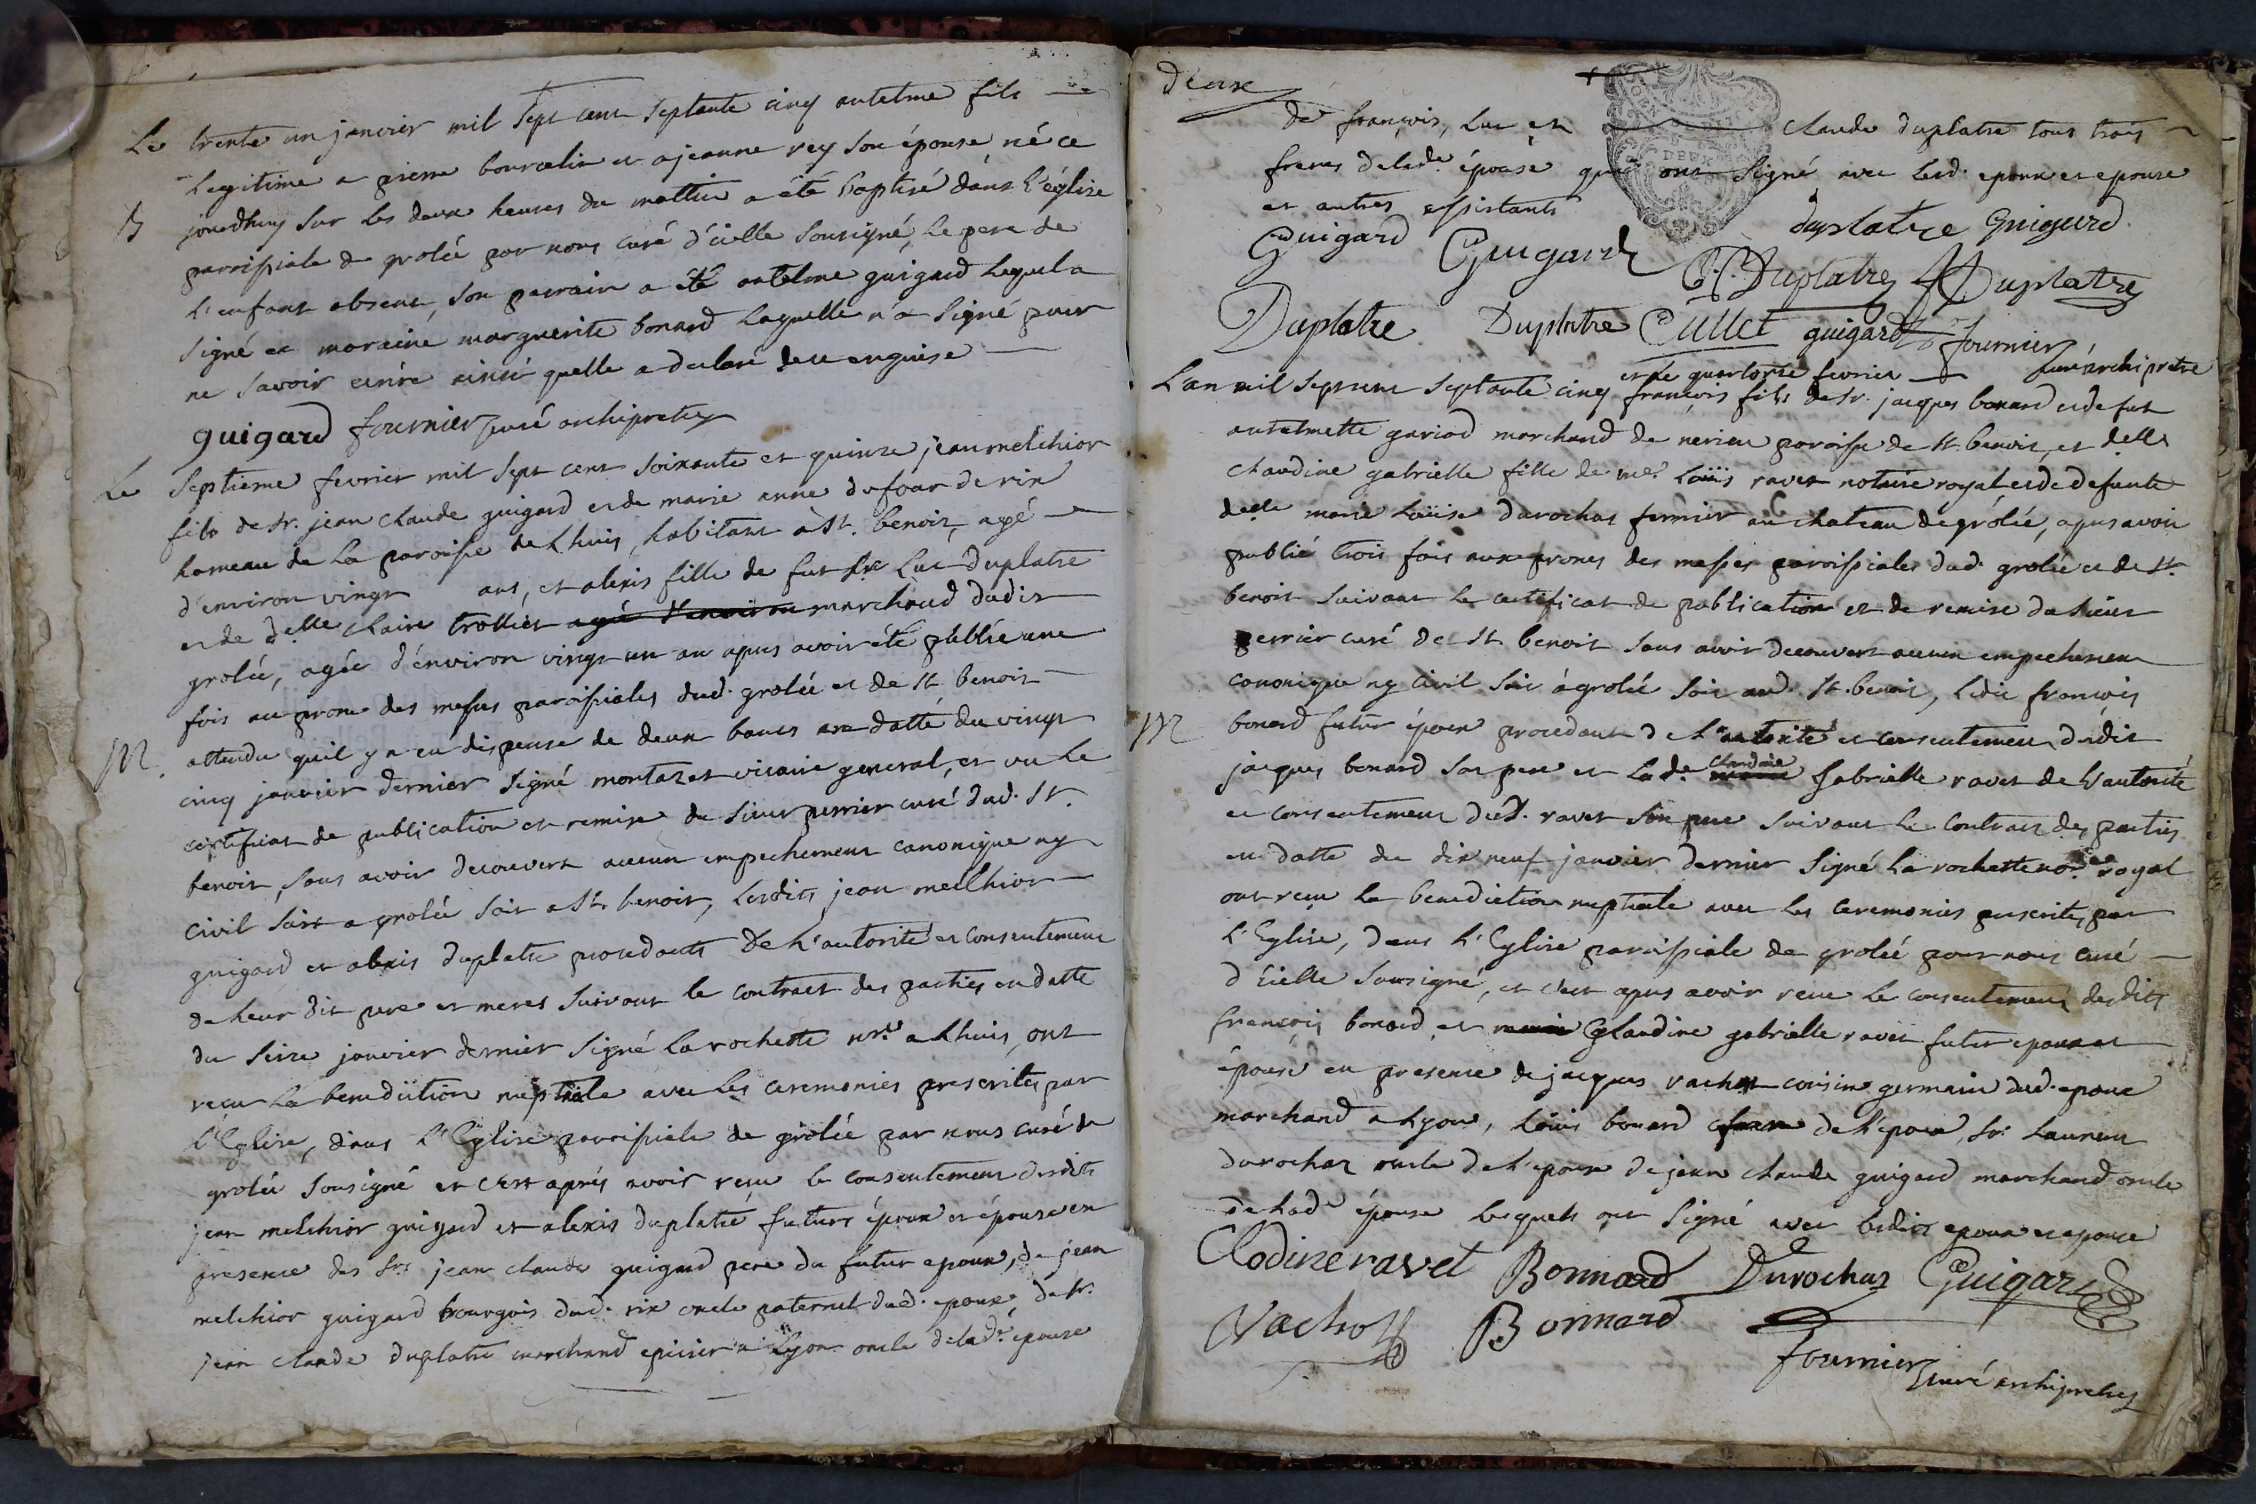 Le trente un janvier mil sept cent septante cinq antelme fils
legitime a pierre bourcelin et a jeanne rey son épouse né ce
B jourdhuy sur les deux heures du mattin a été baptisé dans l'église
paroissiale de grolée par nous curé d'icelle sousigné, le pere de
l'enfant absent, son parrain a été antelme guigard lequel a
signé et moraine marguerite bonard laquelle n'a signé pour
ne savoir ecrire ainsi quelle a declaré de ce enquise
guigard fournier curé archipretre
Le septieme fevrier mil sept cent soixante et quinze jean melchior
fils de Sr. jean claude guigard et de marie anne dufour de rix
hameau de la paroisse de Lhuis, habitant à St. benoit, agé
d'environ vingt ans, et alexis fille de fut Sr. Luc Duplatre
et de delle claire trollier agé d'environ marchand dudit
grolée, agée d'environ vingt un an apres avoir été publié une
fois au prone des messes paroissiales dud. grolée et de St. benoit
M. attendu qu'il y a eu dispense de deux bancs en datte du vingt
cinq janvier dernier signé montazet vicaire general, et vu le
certificat de publication et remise du sieur perrier curé dud. St.
benoit, sans avoir decouvert aucun empechement canonique ny
civil soit a grolée soit a St. benoit, lesdits jean melchior
guigard et alexis duplatre procedants de l'autorité et consentement
de leur dit pere et meres suivant le contract des parties en datte
du seize janvier dernier signé Larochette nre. a Lhuis, ont
reçu la benediction nuptiale avec les ceremonies prescrites par
l'Eglise, dans l'Eglise paroissiale de grolée par nous curé de
grolée sousigné et c'est aprés avoir reçu le consentement desdits
jean melchior guigard et alexis duplatre futurs époux et épouse en
presence des Srs. jean claude guigard pere du futur epoux, de jean
melchior guigard bourgois dud. rix oncle paternel dud. epoux, de Sr.
jean claude duplatre marchand epicier a Lyon oncle de lad. epouse
deux
de françois, luc et claude duplatre tous trois
freres de lade. épouse qui ont signé avec lesd. epoux et epouse
et autres assistants
duplatre Guigard
Guigard Guigard J. Duplatre Duplatre
Duplatre Duplatre Cullet guigard fournier
curé archipretre
et le quartorze fevrier
L'an mil sept cent septante cinq françois fils de Sr. jacques bonard et de fut
antelmette gariod marchand de nerieu paroisse de St. benoit, et delle
claudine gabrielle fille de me. Loüis ravet notaire royal et de defunte
delle marie Loüise durochat fermier au chateau de grolée, apres avoir
publié trois fois aux prones des messes paroissiales dud. grolée et de St.
benoit suivant le certificat de publication et de remise du sieur
perrier curé de St. benoit sans avoir decouvert aucun empechement
canonique ny civil soit à grolée soit aud. St. benoit, ledit françois
M bonard futur époux procedant de l'autorité et consentement dudit
jacques bonard son pere et la de. claudine gabrielle ravet de l'autorité
et consentement dud. ravet son pere suivant le contract des parties
en datte du dix neuf janvier dernier signé Larochette nore. royal
ont reçu la benediction nuptiale avec les ceremonies prescrites par
l'Eglise, dans l'Eglise paroissiale de grolée par nous curé
d'icelle sousigné, et c'est apres avoir reçu le consentement desdits
françois bonard et Claudine gabrielle ravet futur epoux et
épouse en presence de jacques vachot cousin germain dud. epoux
marchand a Lyon, loüis bonard frere de l'epoux, Sr. Laurent
durochat oncle de l'epoux de jean claude guigard marchand oncle
de lade. épouse lesquels ont signé avec lesdits epoux et epouse
Clodine ravet Bonnard Durochat Guigard
Vachot Bonnard
fournier curé archipretre